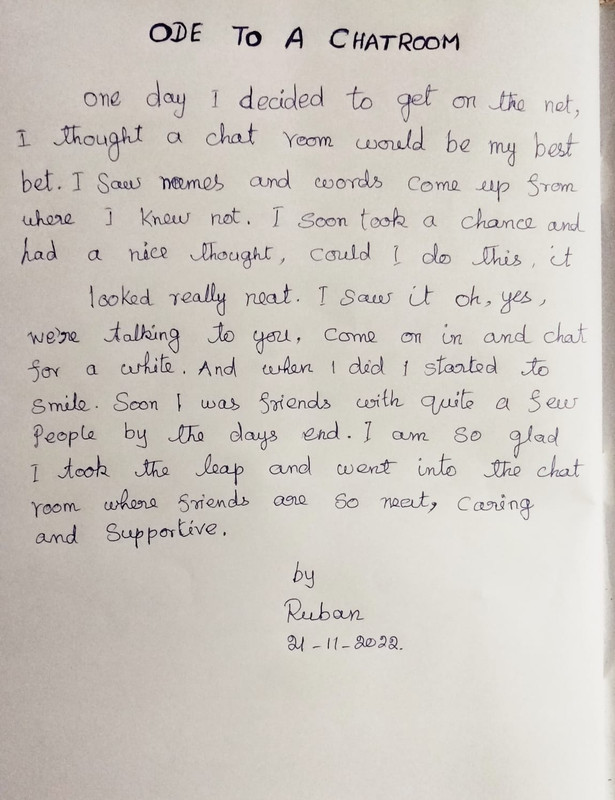 ODE TO A CHATROOM
one day I decided to get on the net,
I thought a chat room would be my best
bet. I Saw names and words come up from
where I knew not. I Soon took a chance and
had a nice thought, could I do this, it
looked really neat. I saw it oh, yes,
we're talking to you, come on in and chat
for a white. And when I did I started to
smile. Soon I was friends with quite a few
People by the days end. I am so glad
I took the leap and went into the chat
room where friends are so neat, Caring
and Supportive.
by
Ruban
21-11-2022.